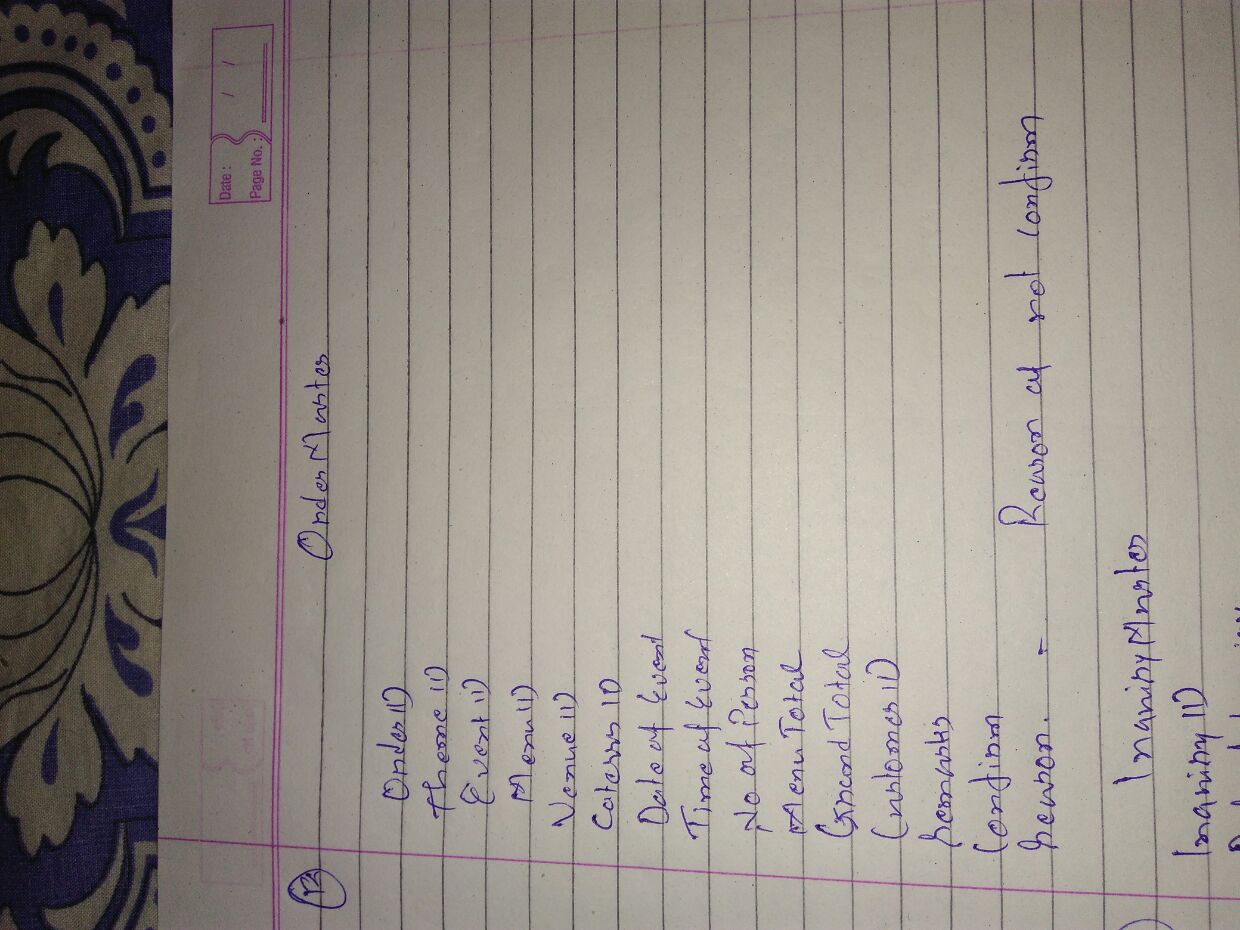 Date : / /
Page No. :
Order Master
Order ID
Theme ID
Event ID
Menu ID
Venue ID
Caterrs ID
Date of Event
Time of Event
No of Person
Menu Total
Grand Total
Customer ID
Remarks
Confirm
Reason. - Reason of not confirm
Inquiry Master
Inquiry ID